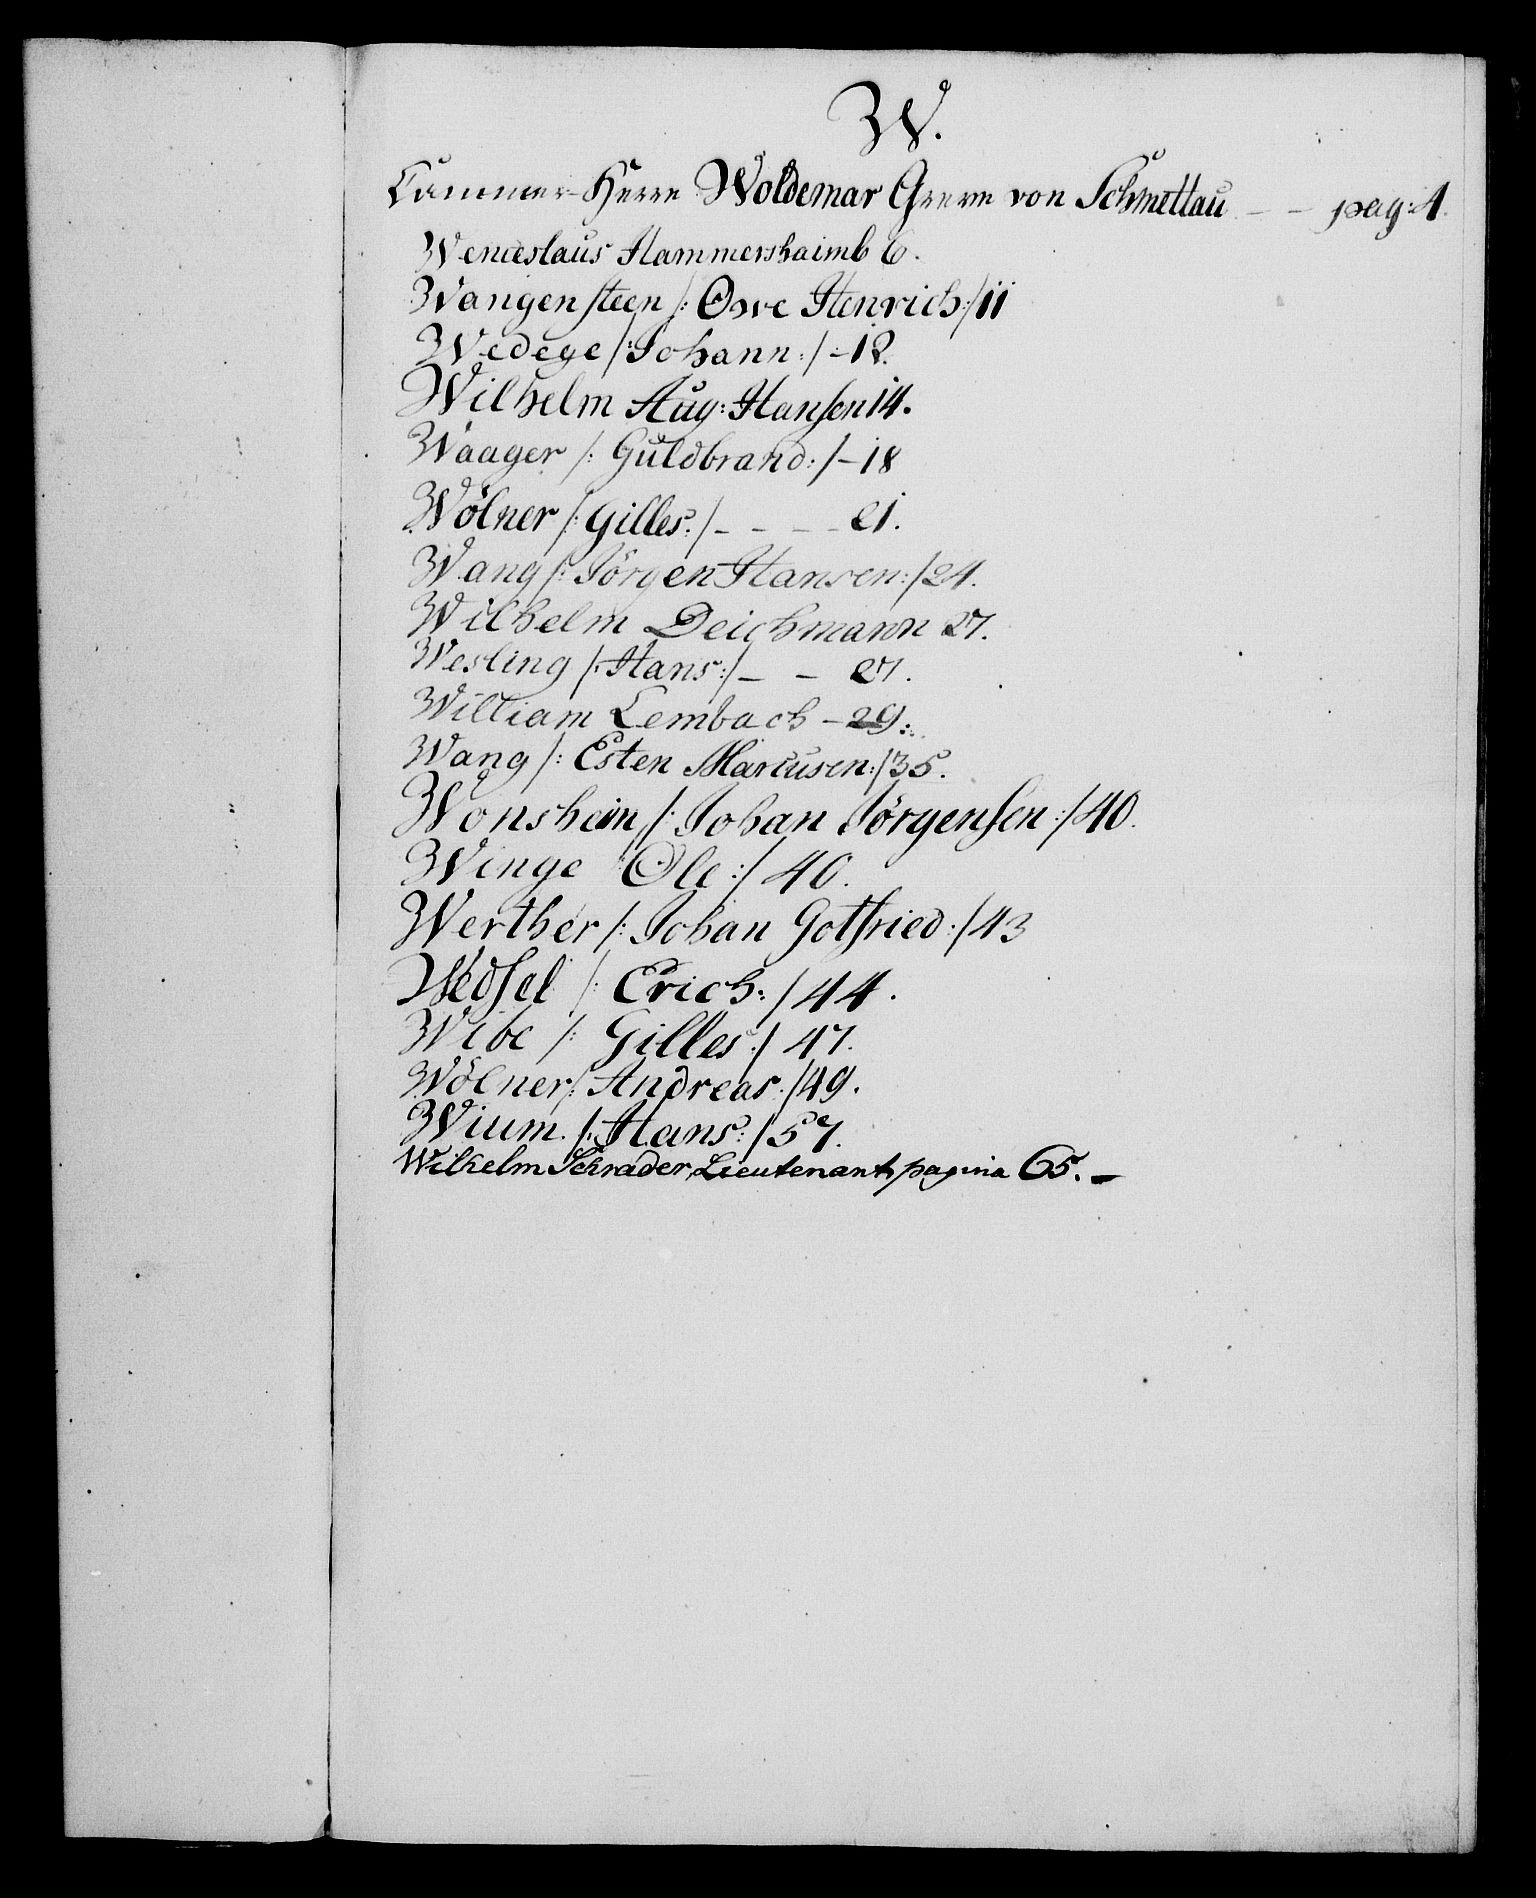 W.
Cammer-Herre Woldemar Greve von Schmettau – – pag: 4.
Wenceslaus Hammershaimb 6.
Wangensteen /: Ove Henrich :/ 11
Wedege /: Johann :/ – 12.
Wilhelm Aug: Hansen 14.
Waager /: Guldbrand :/ – 18
Wölner /: Gilles :/ – – – – 21.
Wang /: Jörgen Hansen :/ 24.
Wilhelm Deichmann 27.
Wesling /: Hans :/ – – 27.
William Lembach – 29.
Wang /: Esten Marcusen :/ 35.
Wonsheim /: Johan Jörgensen :/ 40.
Winge /: Ole :/ 40.
Werther /: Johan Gotfried :/ 43
Wedsel /: Erich :/ 44.
Wibe /: Gilles :/ 47.
Wölner /: Andreas :/ 49.
Wium /: Hans :/ 57.
Wilhelm Schrader, Lieutenant, pagina 65. –